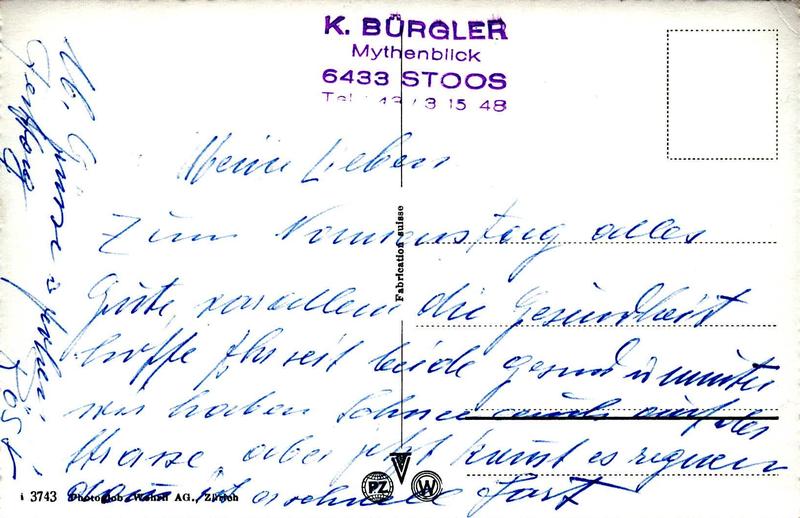 K. BÜRGLER
Mythenblick
6433 STOOS
Tel. 43 / 3 15 48
Meine Lieben
Zum Nammstag alles
Gute, vor allem die Gesundheit
hoffe Ihr seit beide gesund u munter
wir haben Schnee auch auf der
Strasse, aber jetzt kommt es regnen
dann ist er schnell fort
Lb. Grüsse u frohen
Festtag
Rösi
Fabrication suisse
i 3743 Photoglob-Wehrli AG., Zürich
PZ
W